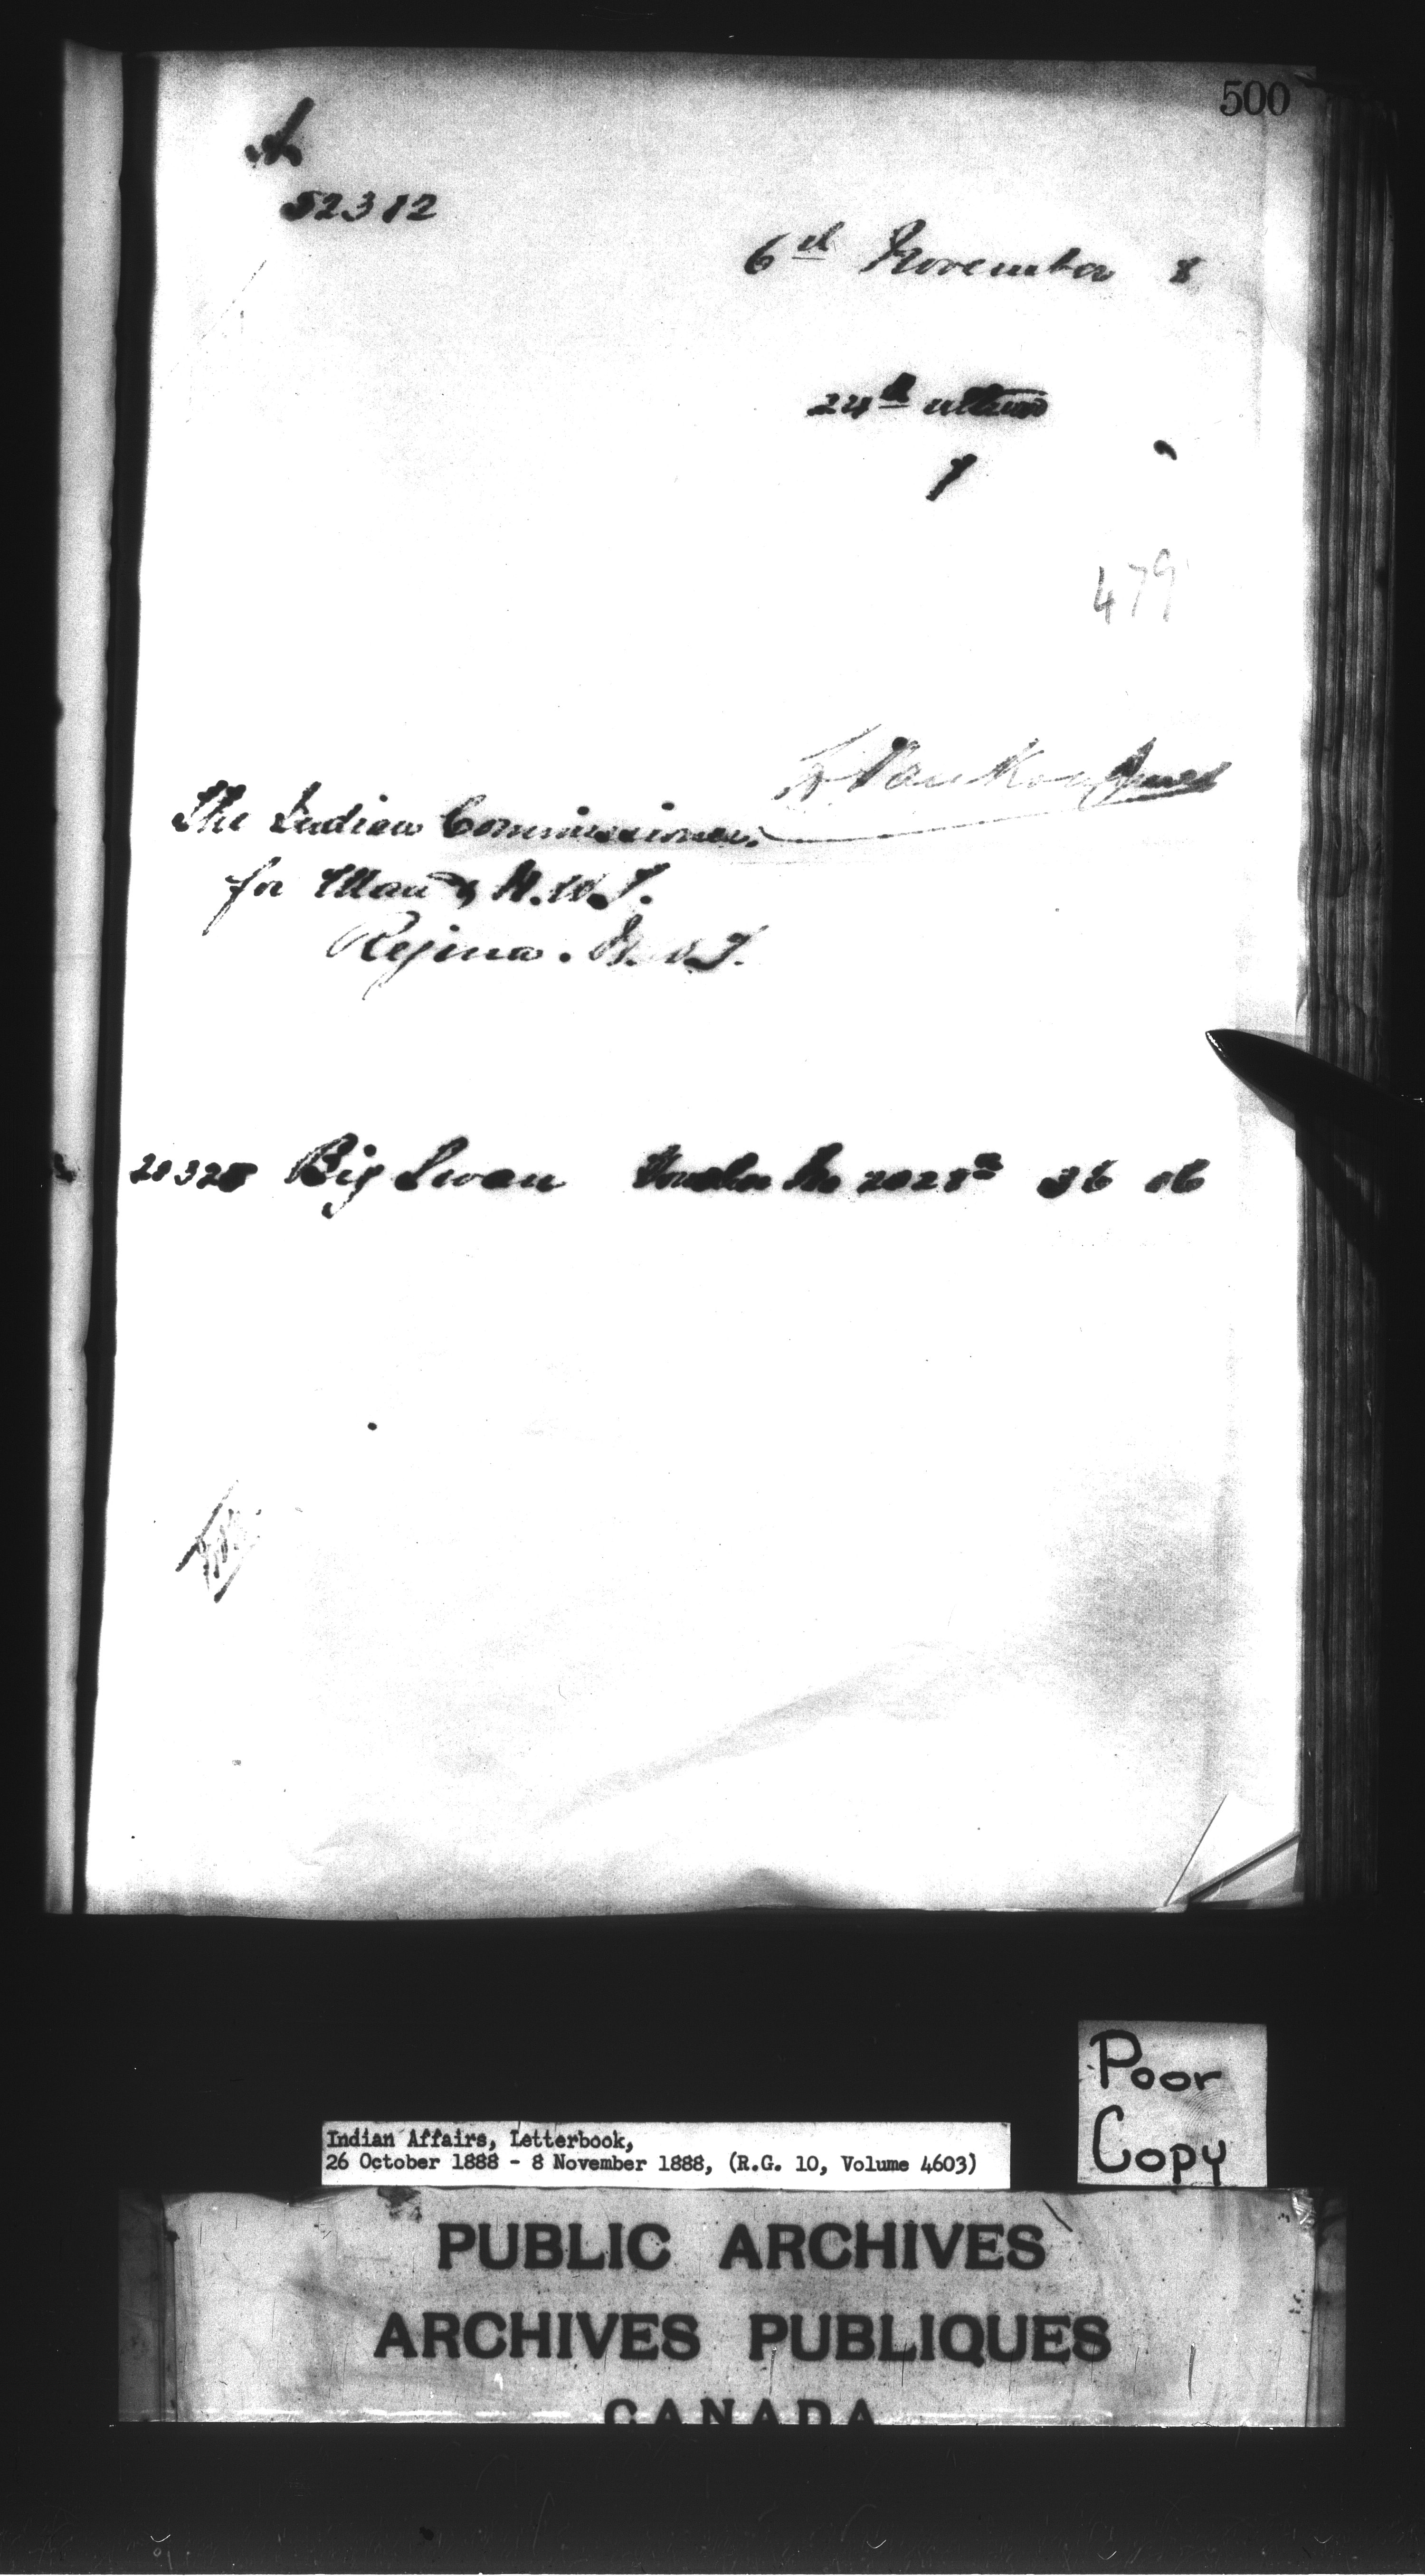 500
A
52312
6th November 8
24th ultimo
1
479
L. VanKoughnet
The Indian Commissioner.
for Man & N.W.T.
Regina. N.W.T.
20328 Big Swan Voucher No 2028 36 06
Poor
Copy
Indian Affairs, Letterbook,
26 October 1888 - 8 November 1888, (R.G. 10, Volume 4603)
PUBLIC ARCHIVES
ARCHIVES PUBLIQUES
CANADA